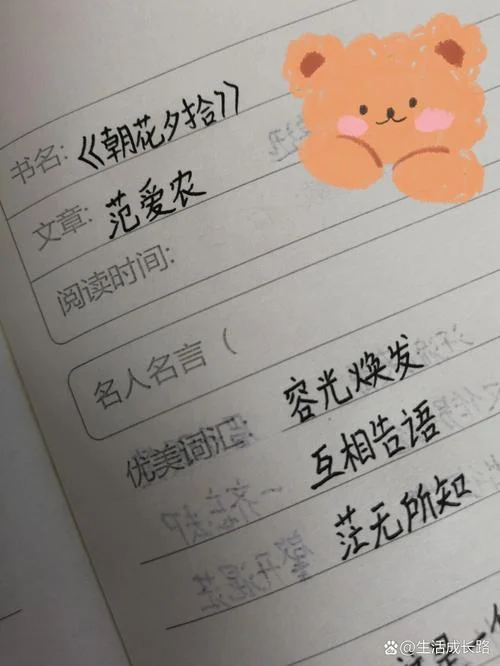 书名:《朝花夕拾》
文章:范爱农
阅读时间:
名人名言(
优美词汇 容光焕发
互相告语
茫无所知
是一个
@生活成长路